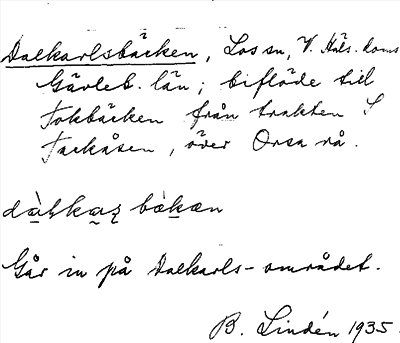 Dalkarlsbäcken, Los sn, V. Häls. doms
Gävleb. län; biflöde till
Tokbäcken från trakten S
Tackåsen, över Orsa rå.
dàlkaʂ bäkæn
Går in på Dalkarls-området.
B. Lindén 1935.